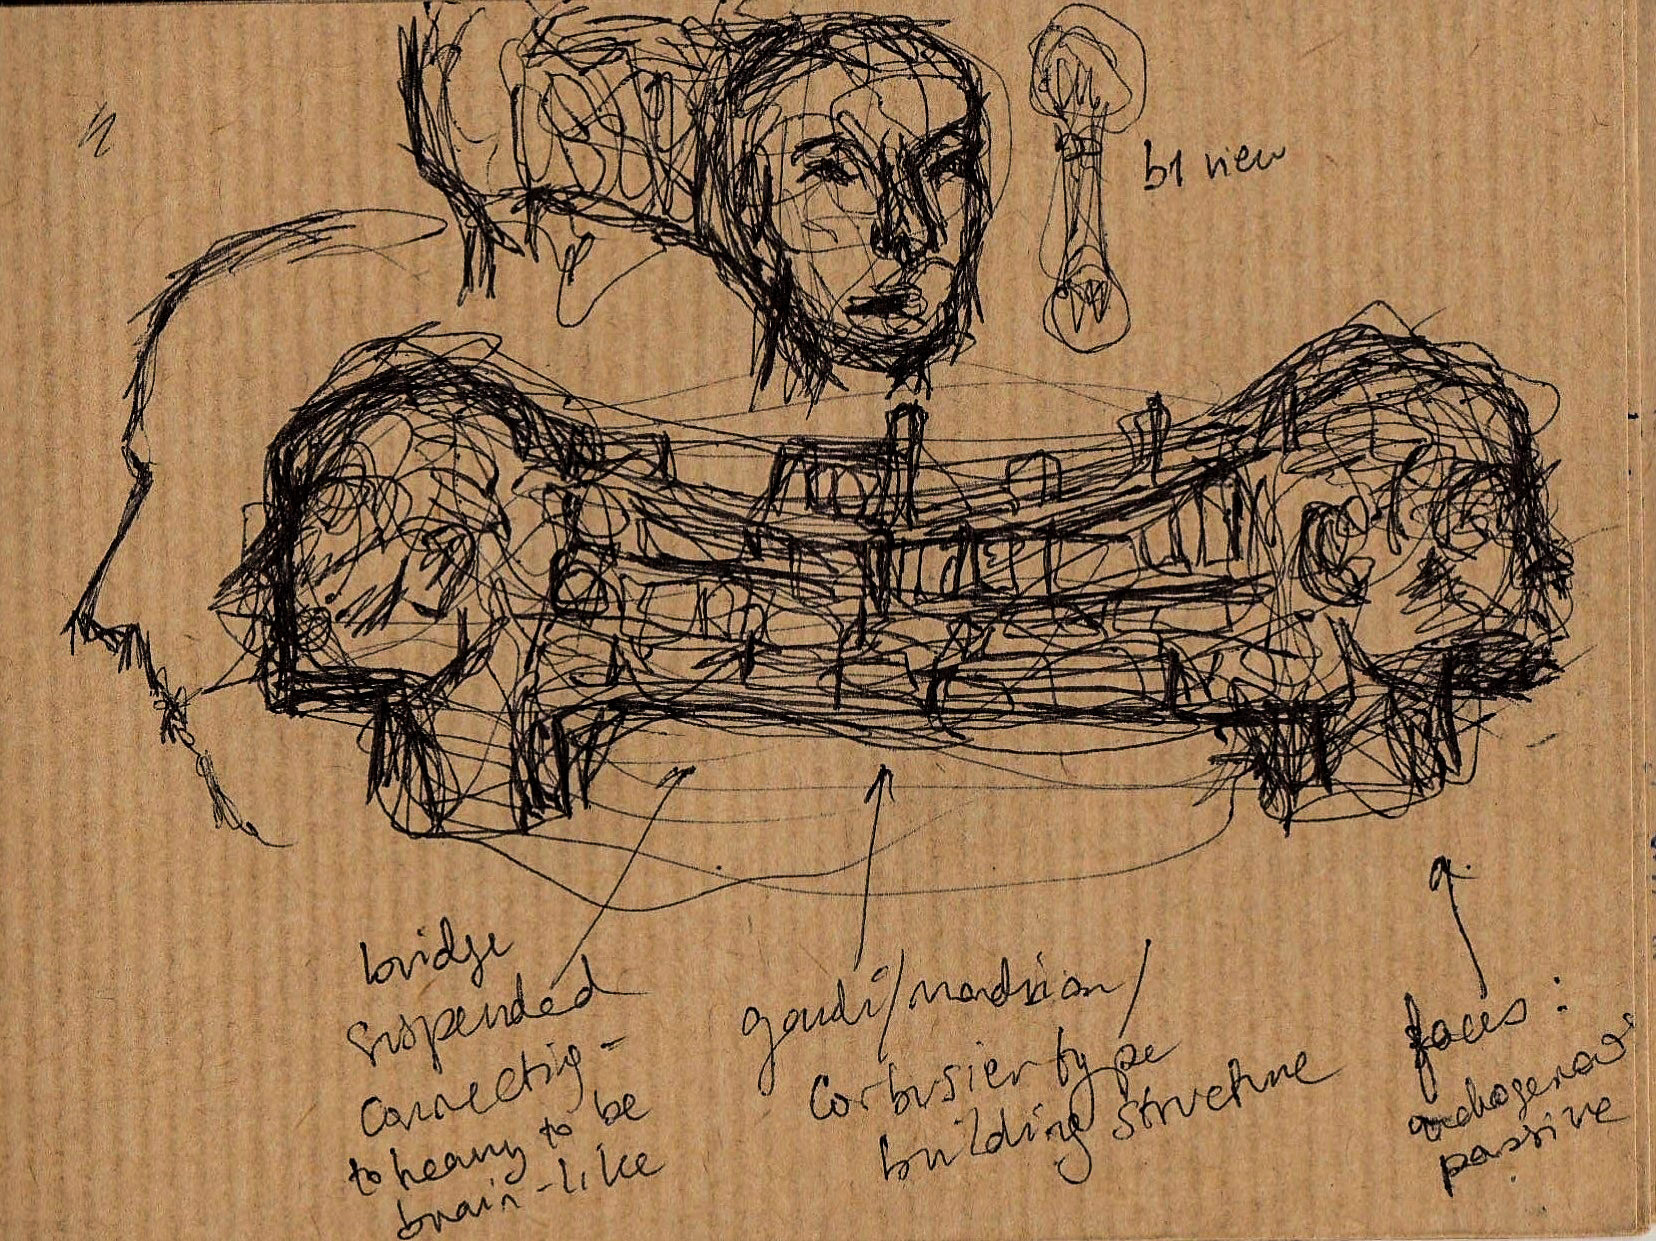 view
bridge
suspended
connecting-
to heavy to be
brain-like
gaudi/mondrian/
Corbusier type
building structure
faces:
passive